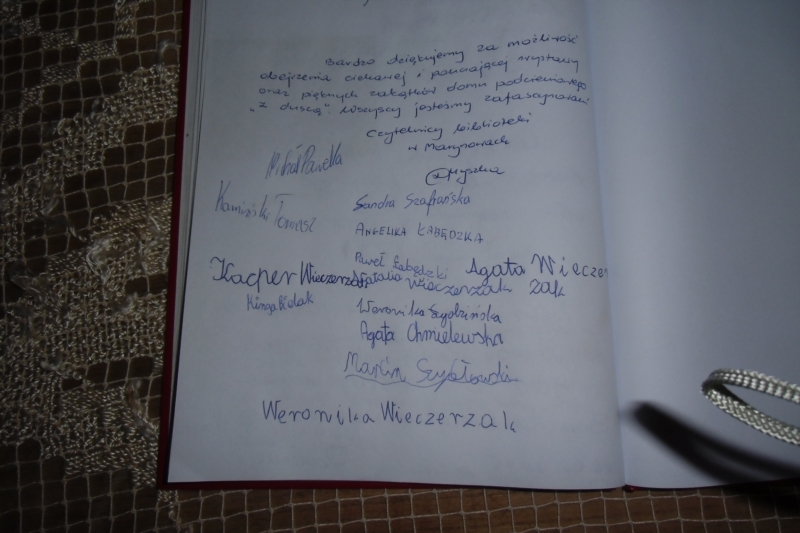 Bardzo dziękujemy za możliwość
obejrzenia ciekawej i pouczającej wystawy
oraz pięknych zakątków domu podcieniowego
„z duszą". Wszyscy jesteśmy zafascynowani
Czytelnicy biblioteki
w Marynowach
Michał Pawełka
Myszka
Kamiński Tomasz
Sandra Szafrańska
ANGELIKA ŁABĘDZKA
Paweł Łabędzki
Agata Wieczerzak
Kacper Wieczerzak
Natalia Wieczerzak
Kinga
Weronika
Agata Chmielewska
Marcin
Weronika Wieczerzak